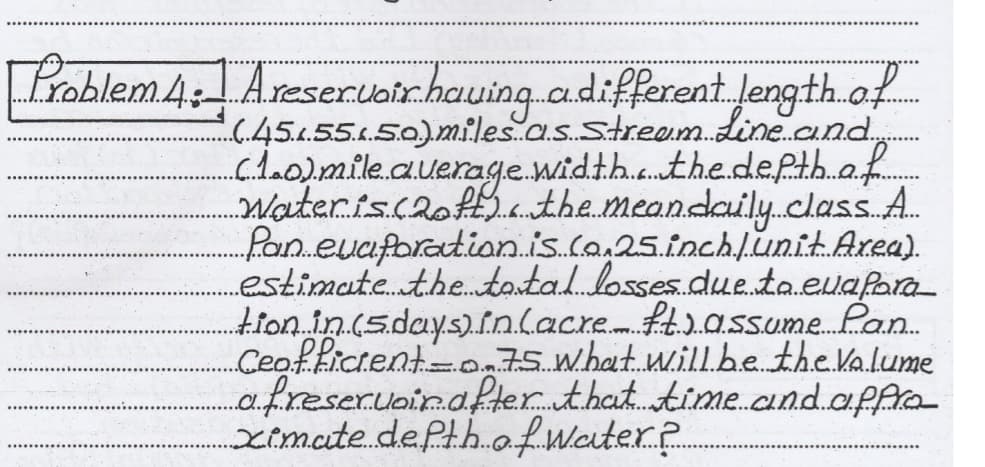 Problem 4:- A reservoir having a different length of
(45,55,50) miles as stream line and
(1.0) mile average width, the depth of
Water is (20ft), the mean daily class A
Pan evaporation is (0.25 inch/unit Area).
estimate the total losses due to evapora_
tion in (5days) in (acre-ft) assume Pan
Ceofficient = 0.75 What will be the Volume
of reservoir after that time and appro_
ximate depth of water?